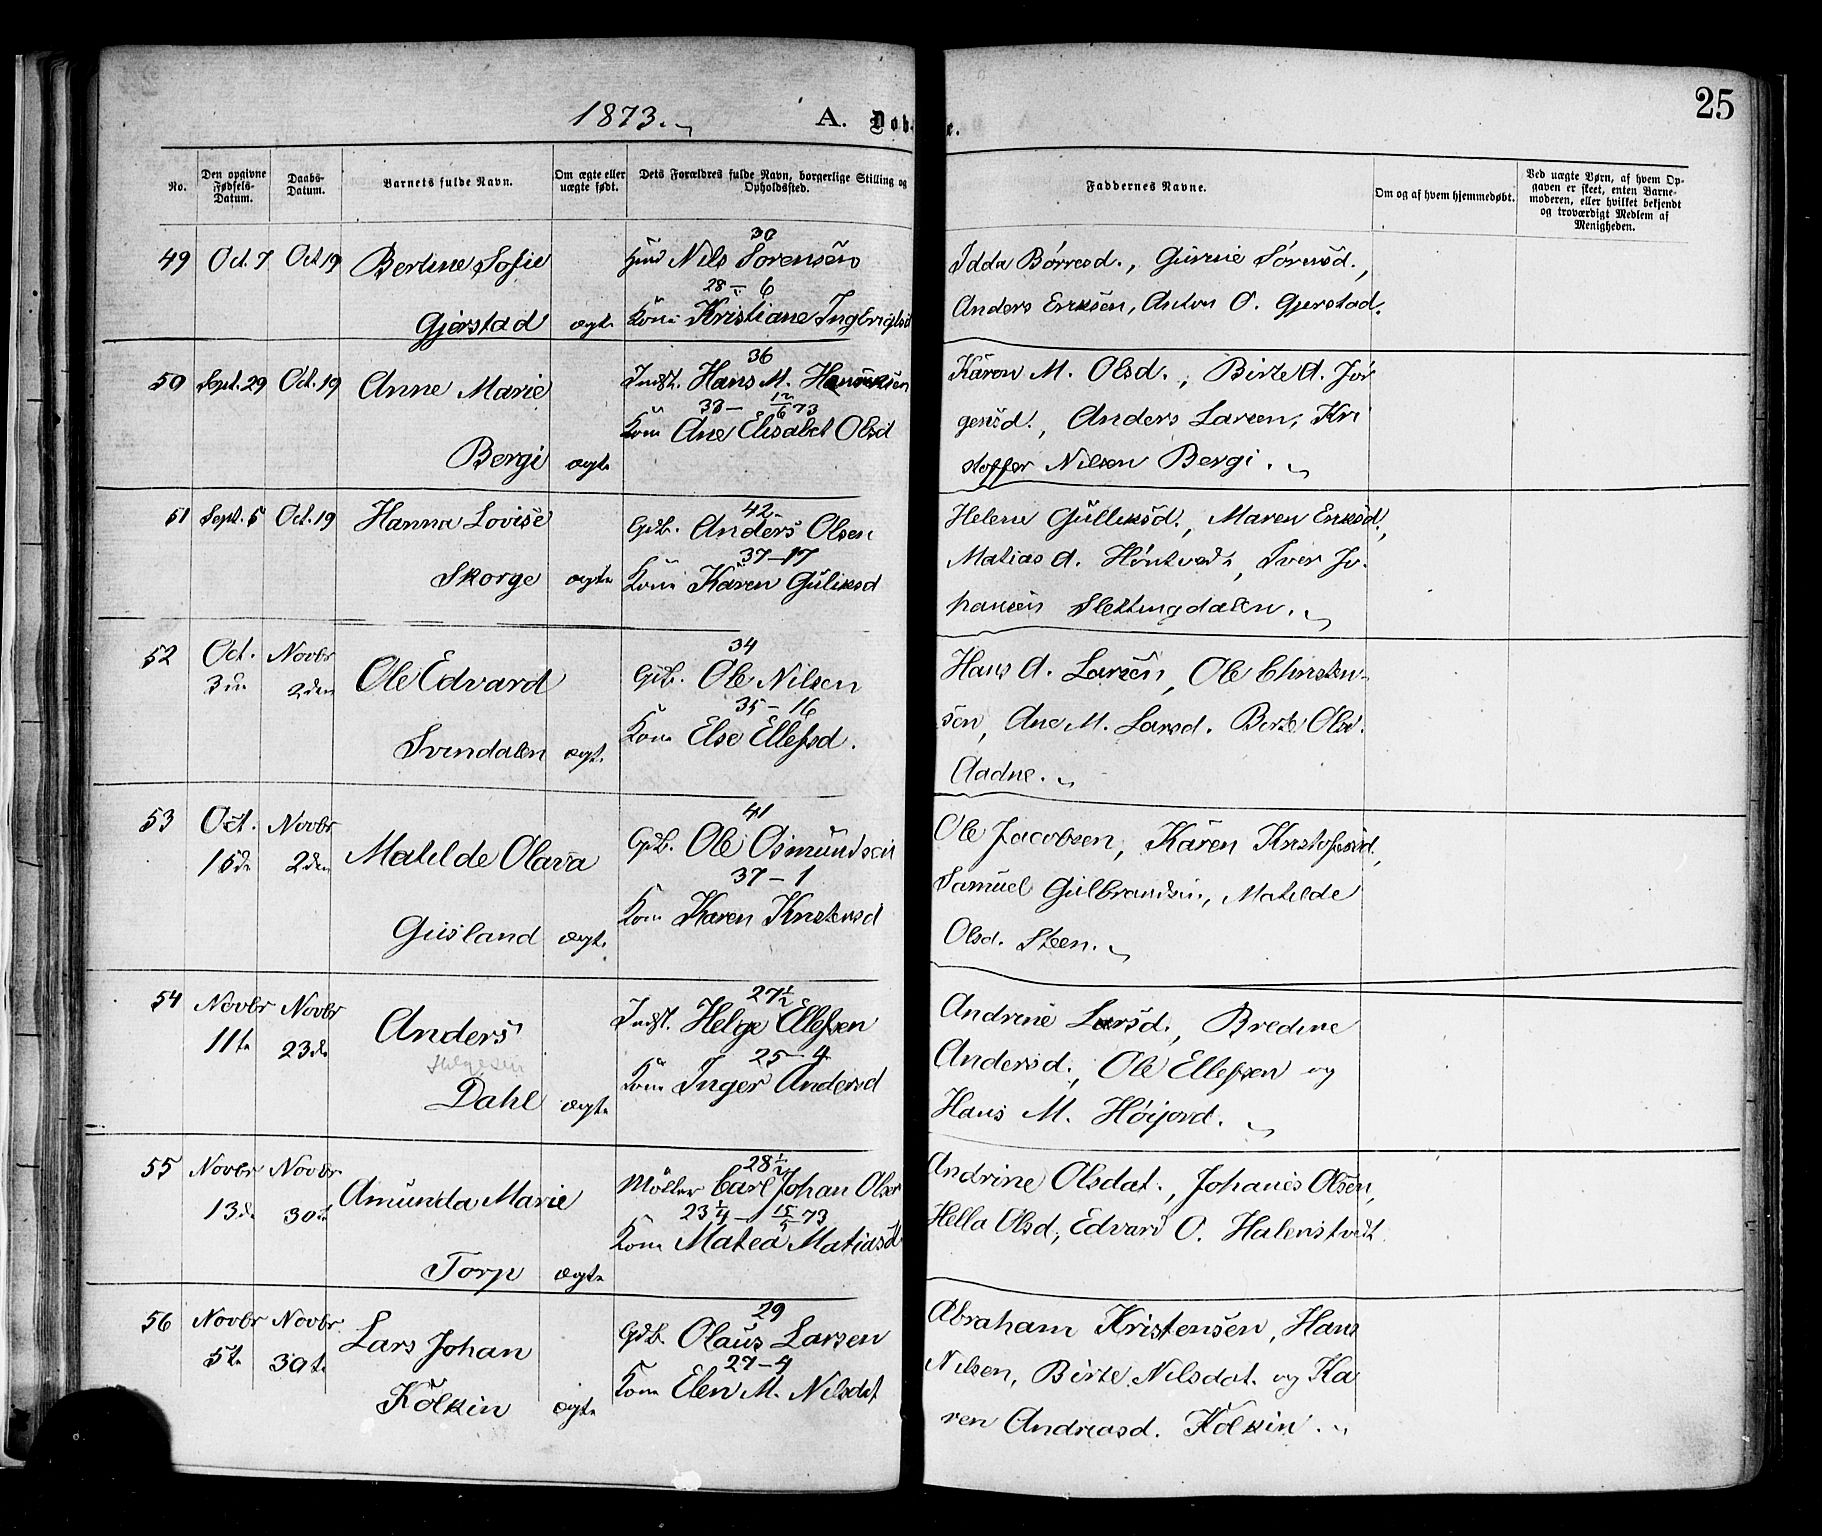 1873. A. Døb e. 25
No. Den opgivne Fødsels-Datum. Daabs-Datum. Barnets fulde Navn. Om ægte eller uægte født. Dets Forældres fulde Navn, borgerlige Stilling og Opholdssted. Faddernes Navne. Om og af hvem hjemmedøbt. Ved uægte Børn, af hvem Opgaven er skeet, enten Barnemoderen, eller hvilket bekjendt og troværdigt Medlem af Menigheden.
30
49 Oct. 7 Oct 19 Bertine Sofie Nils Sørensen Idda Børresd., Gurine Sørensd.,
28 – 6
Gjerstad ægte Kone Kristiane Ingbrigtsd Anders Eriksen, Anton O. Gjerstad.
36
50 Sept. 29 Oct. 19 Anne Marie Indst. Hans M. Hansen Karen M. Olsd., Birte A. Jør
33 – 12/6 73
Kone Ane Elisabet Olsd gensd., Anders Larsen, Kri
Bergi ægte stoffer Nilsen Bergi.
42
51 Sept. 5 Oct. 19 Hanna Lovise Gdb. Anders Olsen Helene Gulliksd., Maren Eriksd.,
37 – 17
Skorge ægte Kone Karen Guliksd Matias A. Høntvedt, Iver Jo-
hansen Slettingdalen.
34
52 Oct. 3die Novbr 2den Ole Edvard Gdb. Ole Nilsen Hans A. Larsen, Ole Christen-
35 – 16
Svindalen ægte Kone Else Ellefsd. sen, Ane M. Larsd. Birte Olsd.
Aadne.
41
53 Oct. 15de Novbr 2den Matilde Olava Gdb. Ole Osmundsen Ole Jacobsen, Karen Kristofersd.,
37 – 1
Gusland ægte Kone Karen Kristensd Samuel Gulbrandsen, Matilde
Olsd. Steen.
27½
54 Novbr 11te Novbr 23de Anders Indst. Helge Ellefsen Andrine Larsd., Bredine
Helgesen
25 – 4
Dahl ægte Kone Inger Andersd Andersd., Ole Ellefsen og
Hans M. Høijord.
28½
55 Novbr 13de Novbr 30te Amunda Marie Møller Carl Johan Olsen Andrine Olsdat., Johanes Olsen,
23¼ – 15/5 73
Torp ægte Kone Matea Matiasd Hella Olsd, Edvard O. Halenstvedt
29
56 Novbr 5te Novbr 30te Lars Johan Gdb. Olaus Larsen Abraham Kristensen, Hans
27 – 4
Kølkin ægte Kone Elen M. Nilsdat Nilsen, Birte Nilsdat. og Ka
ren Andreasd. Kølkin.